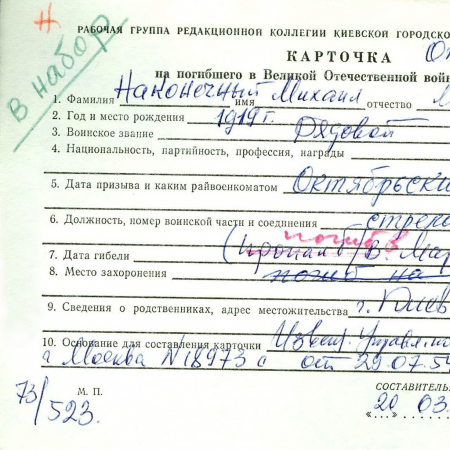 Н
в набор
РАБОЧАЯ ГРУППА РЕДАКЦИОННОЙ КОЛЛЕГИИ КИЕВСКОЙ ГОРОДСКО
КАРТОЧКА
на погибшего в Великой Отечественной вой
1. Фамилия Наконечный имя Михаил отчество
2. Год и место рождения 1919 г.
3. Воинское звание Рядовой
4. Национальность, партийность, профессия, награды
5. Дата призыва и каким райвоенкоматом Октябрьски
6. Должность, номер воинской части и соединения стрело
погиб в
7. Дата гибели (пропал в. Мар
8. Место захоронения погиб на
9. Сведения о родственниках, адрес местожительства г. Киев
10. Основание для составления карточки Извещ. Управл. по
г Москва N 18973 с от 29.07.54
73/523.
М. П.
СОСТАВИТЕЛЬ
„...“ 20 03.